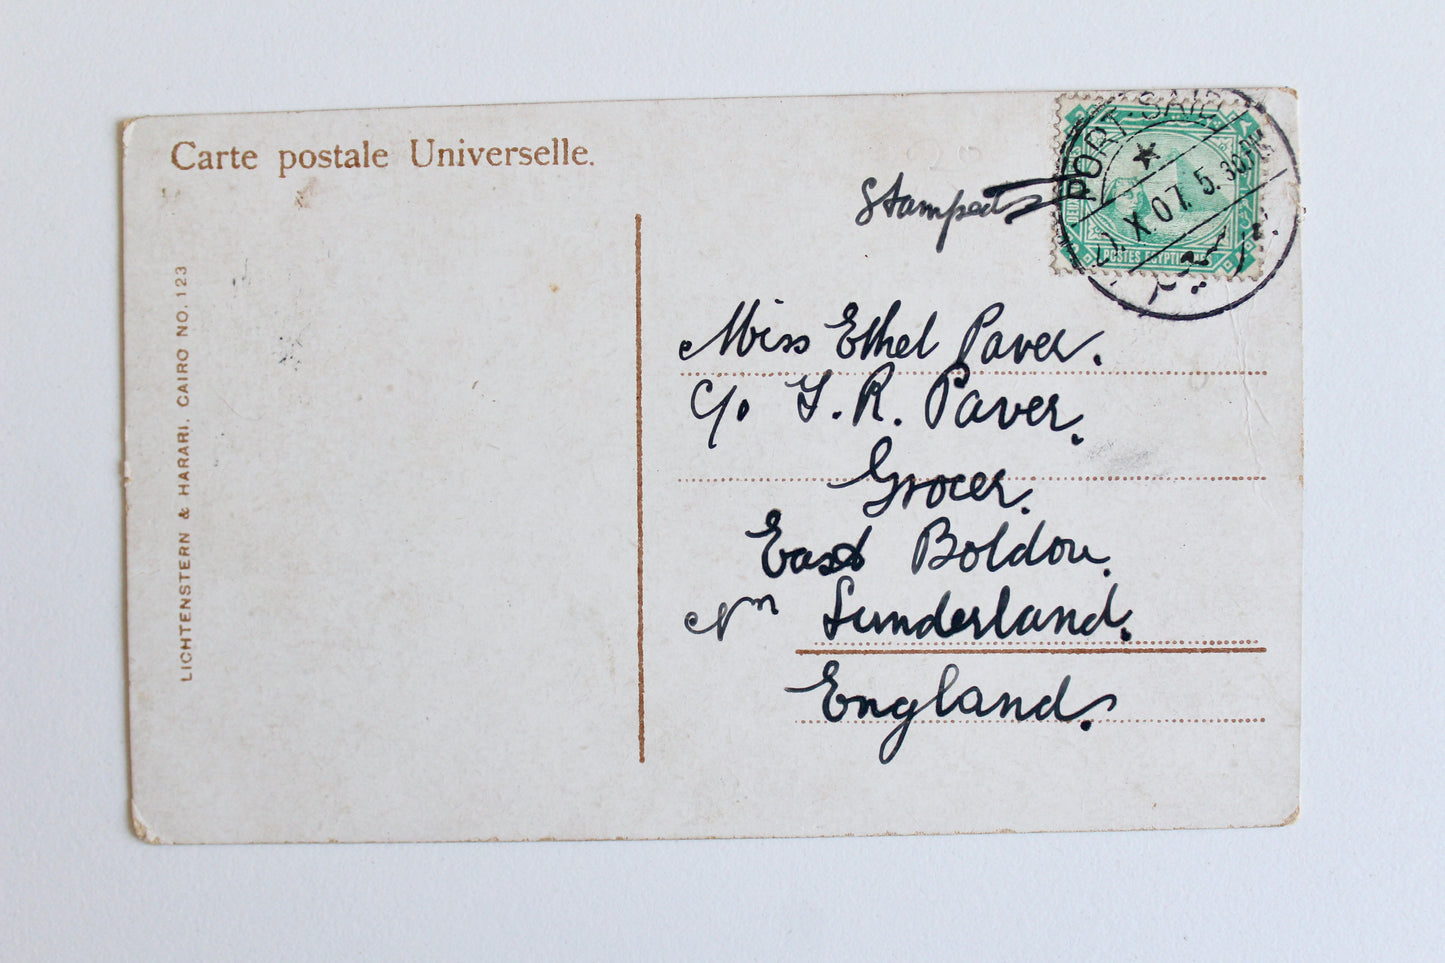 Carte postale Universelle.
LICHTENSTERN & HARARI, CAIRO NO. 123
Stamped
PORT-SAID
X 07 5.30PM
POSTES EGYPTIENNES
Miss Ethel Paver.
c/o T. R. Paver.
Grocer.
East Boldon.
Nr Sunderland.
England.